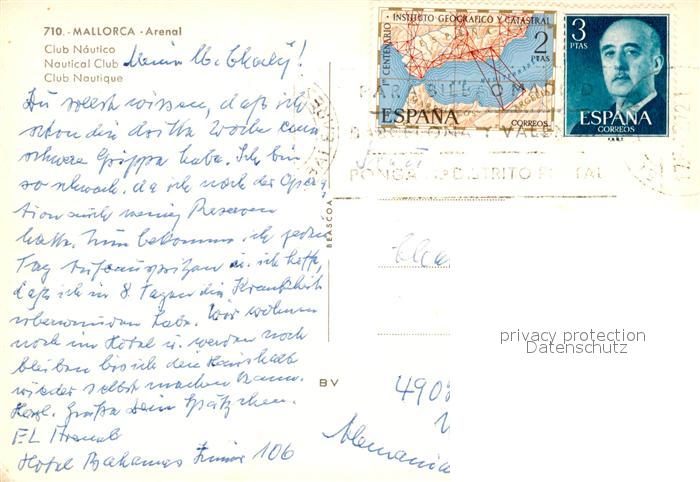 710.- MALLORCA - Arenal
Club Náutico
Nautical Club
Club Nautique
INSTITUTO GEOGRAFICO Y CATASTRAL
CENTENARIO
2
PTAS
ESPAÑA
CORREOS
3
PTAS
ESPAÑA
CORREOS
PONGA DISTRITO POSTAL
Du sollst wissen, daß ich
schon die dritte Woche eine
schwere Grippe habe. Ich bin
so schwach, da ich nach der Opera-
tion auch wenig Reserven
hatte. Nun bekomme ich jeden
Tag u. ich hoffe,
daß ich in 8 Tagen die Krankheit
überwunden habe. Wir wohnen
noch im Hotel u. werden noch
bleiben bis ich den Haushalt
wieder selbst machen kann.
Herzl. Grüße Dein Spätzchen.
El Arenal
Hotel Bahamas Zimmer 106
BEASCOA
BV
490
Alemania
privacy protection
Datenschutz